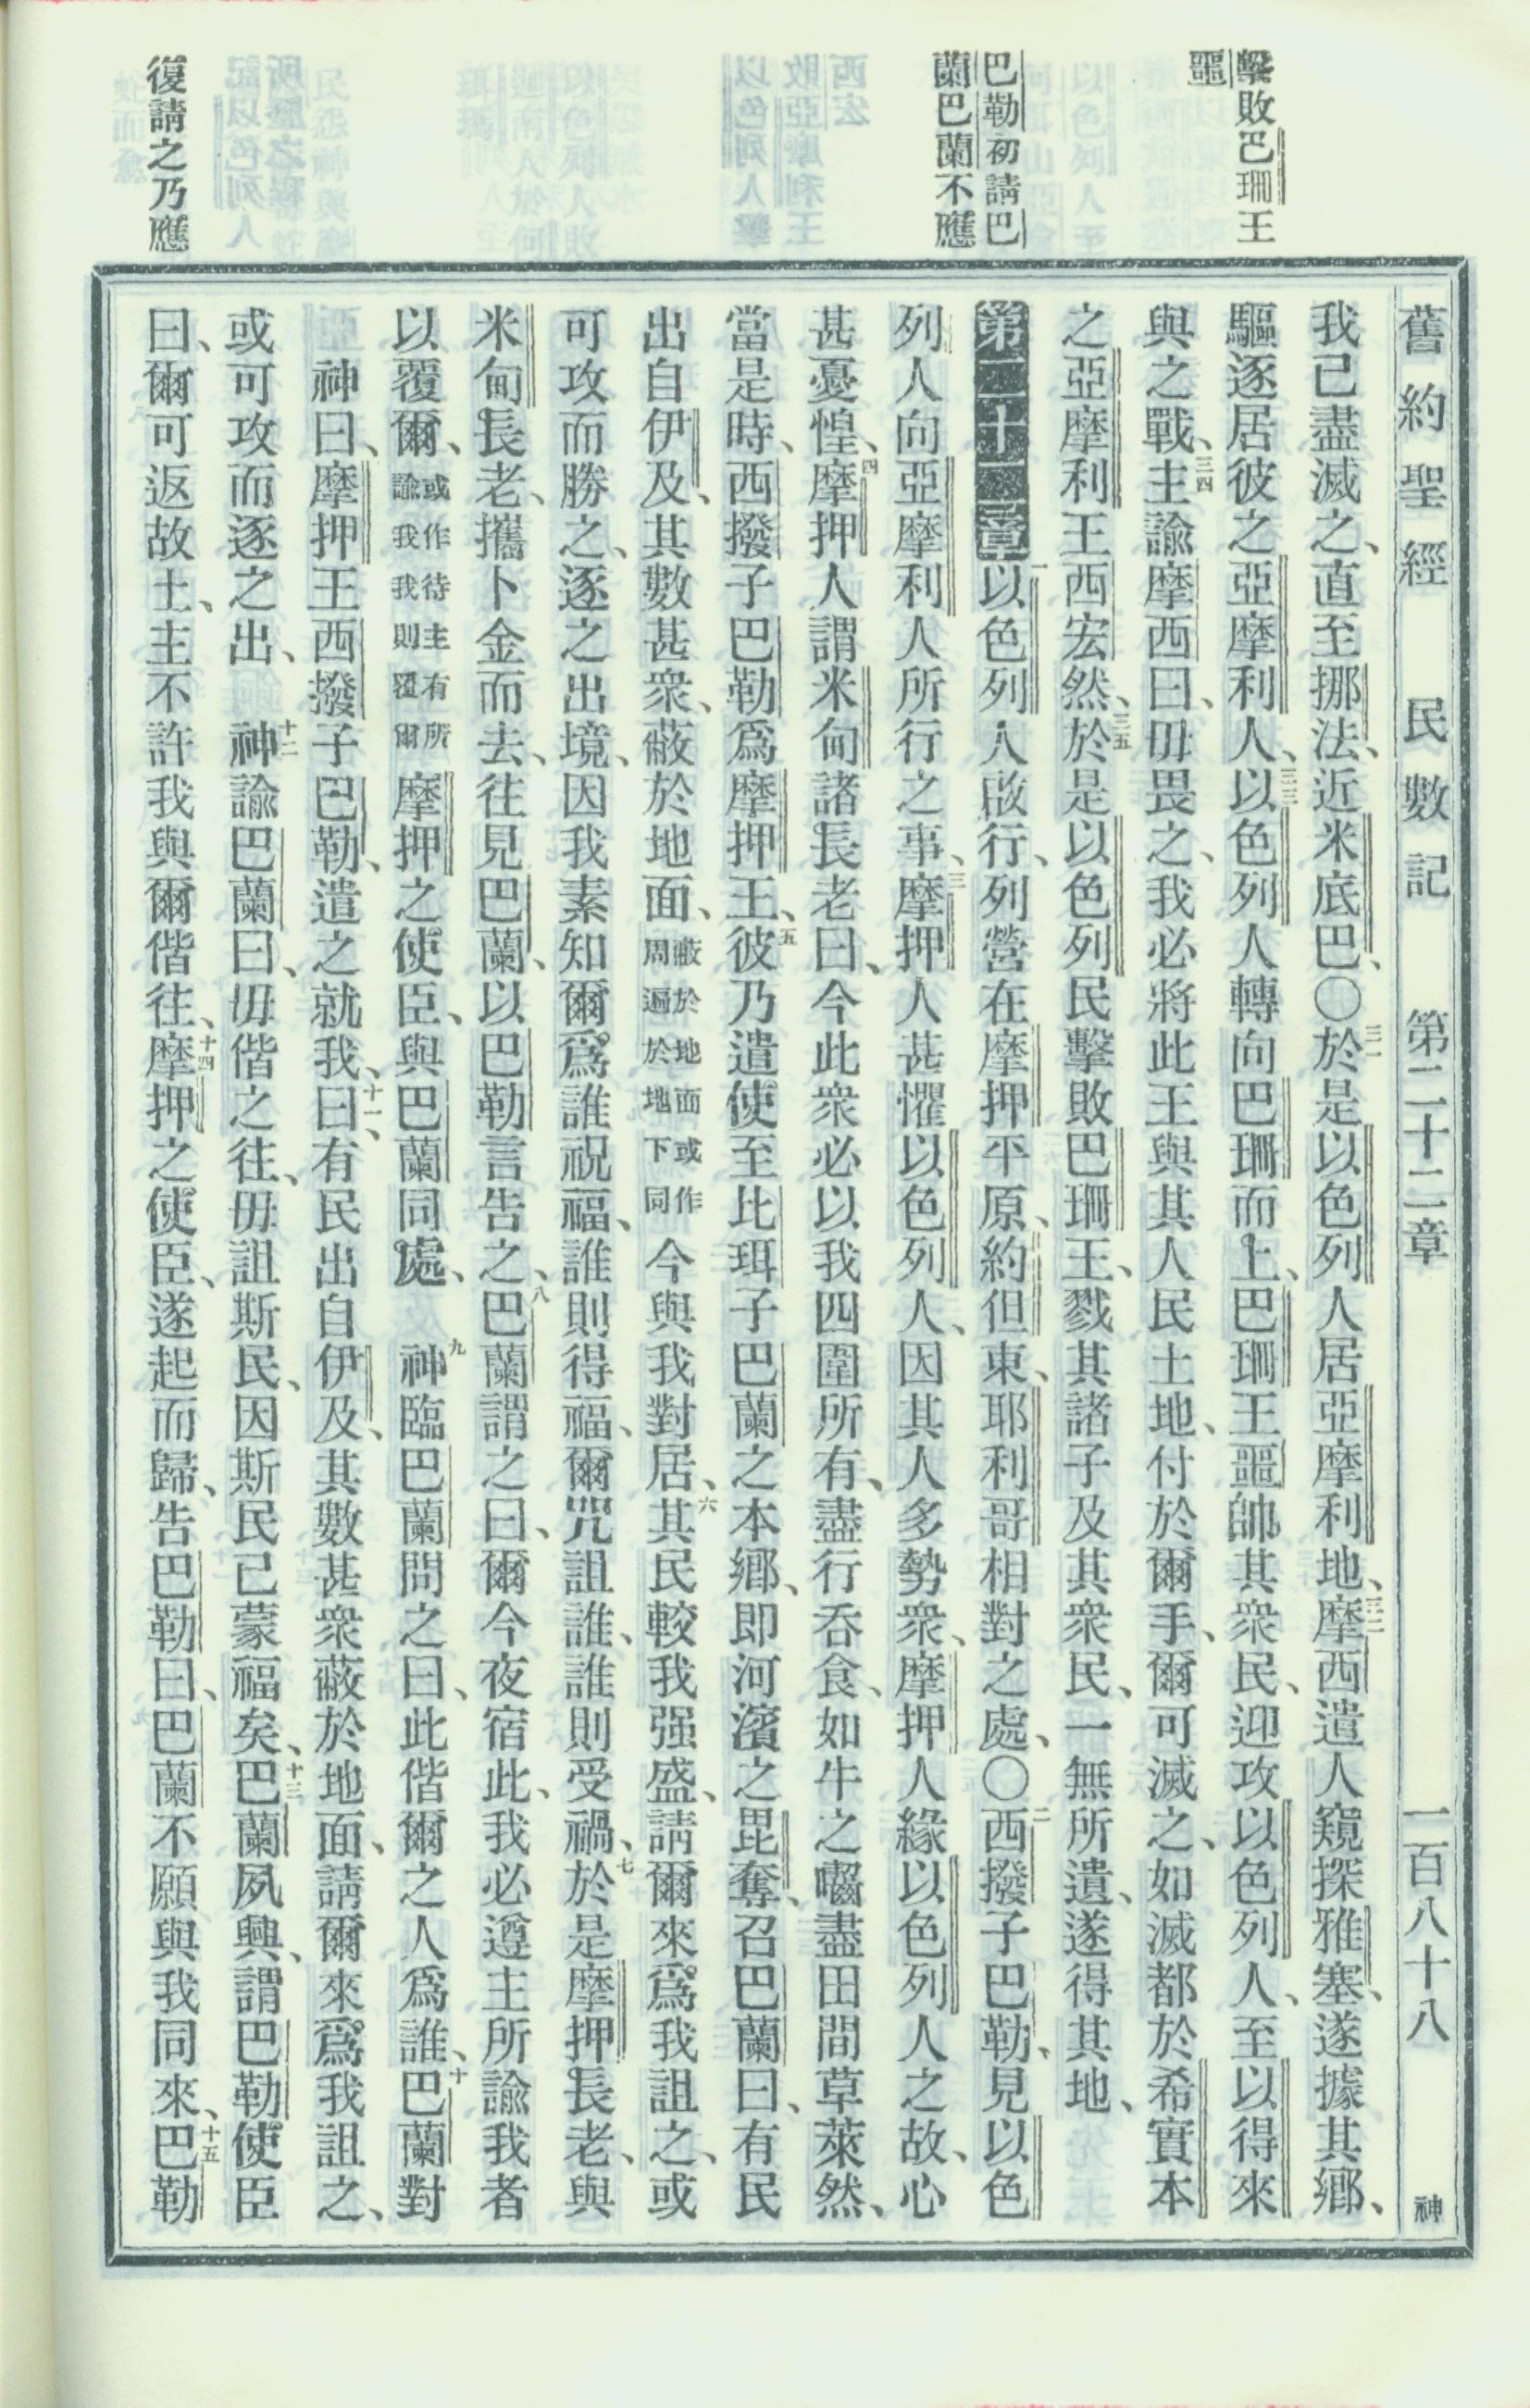 舊約聖經　民數記　第二十二章　一百八十八　神
擊敗巴珊王
噩
巴勒初請巴
蘭巴蘭不應
復請之乃應
我已盡滅之、直至挪法、近米底巴、○三一於是以色列人居亞摩利地、三二摩西遣人窺探雅塞、遂據其鄉、
驅逐居彼之亞摩利人、三三以色列人轉向巴珊而上、巴珊王噩帥其衆民、迎攻以色列人、至以得來
與之戰、三四主諭摩西曰、毋畏之、我必將此王與其人民土地、付於爾手、爾可滅之、如滅都於希實本
之亞摩利王西宏然、三五於是以色列民擊敗巴珊王、戮其諸子及其衆民、一無所遺、遂得其地、
第二十二章一以色列人啟行、列營在摩押平原、約但東、耶利哥相對之處、○二西撥子巴勒、見以色
列人向亞摩利人所行之事、三摩押人甚懼以色列人、因其人多勢衆、摩押人緣以色列人之故、心
甚憂惶、四摩押人謂米甸諸長老曰、今此衆必以我四圍所有、盡行吞食、如牛之嚙盡田間草萊然、
當是時、西撥子巴勒爲摩押王、五彼乃遣使至比珥子巴蘭之本鄉、即河濱之毘奪、召巴蘭曰、有民
出自伊及、其數甚衆、蔽於地面、蔽於地面或作周遍於地下同今與我對居、六其民較我强盛、請爾來爲我詛之、或
可攻而勝之、逐之出境、因我素知爾爲誰祝福、誰則得福、爾咒詛誰、誰則受禍、七於是摩押長老、與
米甸長老、攜卜金而去、往見巴蘭、以巴勒言告之、八巴蘭謂之曰、爾今夜宿此、我必遵主所諭我者
以覆爾、或作待主有所諭我我則覆爾摩押之使臣、與巴蘭同處、九神臨巴蘭問之曰、此偕爾之人爲誰、十巴蘭對
神曰、摩押王西撥子巴勒、遣之就我、曰、十一有民出自伊及、其數甚衆蔽於地面、請爾來爲我詛之、
或可攻而逐之出、十二神諭巴蘭曰、毋偕之往、毋詛斯民、因斯民已蒙福矣、十三巴蘭夙興、謂巴勒使臣
曰、爾可返故土、主不許我與爾偕往、十四摩押之使臣、遂起而歸、告巴勒曰、巴蘭不願與我同來、十五巴勒